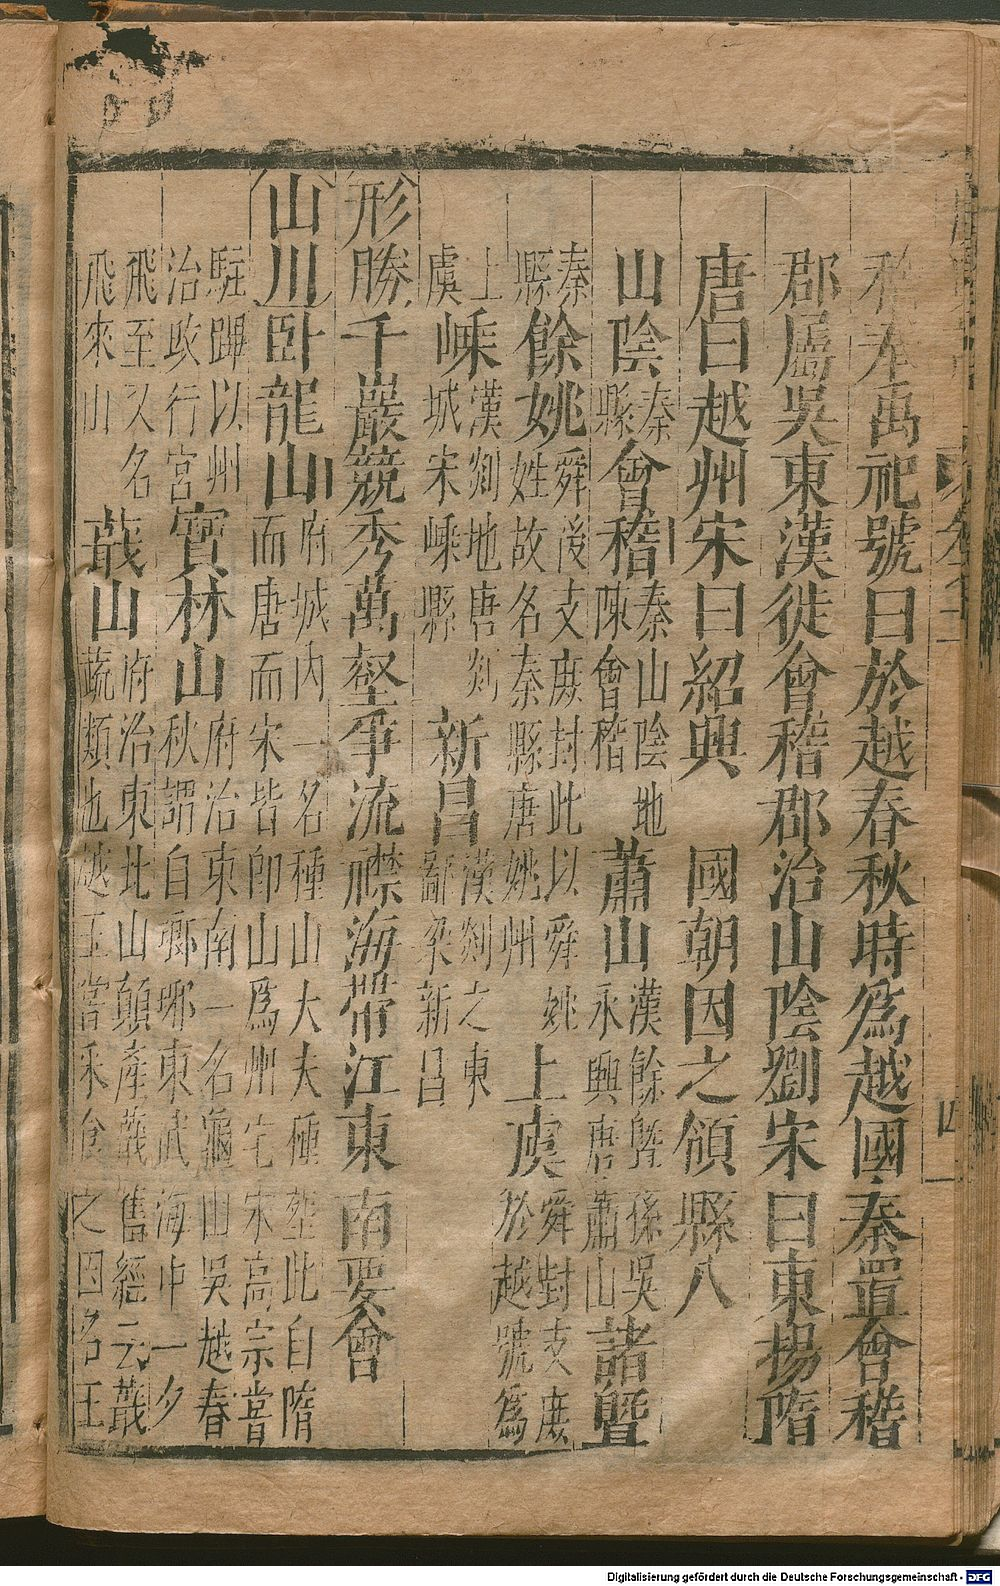 稽奉禹祀號曰於越春秋時爲越國秦置會稽
郡屬吳東漢徙會稽郡治山陰劉宋曰東揚隋
唐曰越州宋曰紹興 國朝因之領縣八
山陰秦縣會稽秦山陰地陳會稽蕭山漢餘暨孫吳永興唐蕭山諸暨
秦縣餘姚舜後支庶封此以舜姚姓故名秦縣唐姚州上虞舜封支庶於越號爲
上虞嵊漢剡地唐剡城宋嵊縣新昌漢剡之東鄙梁新昌
形勝千巖競秀萬壑爭流襟海帶江東南要會
山川卧龍山府城内一名種山大夫種塟此自隋而唐而宋皆卽山爲州宅宋高宗嘗
駐蹕以州治攺行宮寶林山府治東南一名龜山吳越春秋謂自瑯琊東武海中一夕
飛至又名飛來山蕺山府治東北山顛產蕺舊經云蕺蔬類也越王嘗采食之因名王
Digitalisierung gefördert durch die Deutsche Forschungsgemeinschaft - DFG